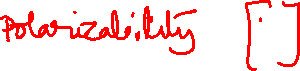 Polarizability [·]